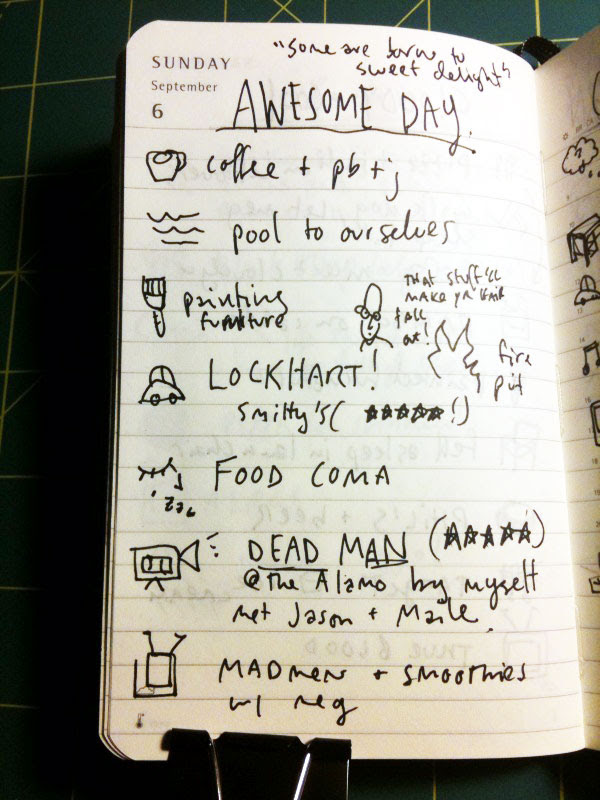 SUNDAY
September
6
"some are born to
sweet delight"
AWESOME DAY.
coffee + pb + j
pool to ourselves
painting
furniture
THAT STUFF'LL
MAKE YR HAIR
fall
out!
LOCKHART!
fire
pit
Smitty's (★★★★★!)
FOOD COMA
zzz
DEAD MAN (★★★★★)
@ the Alamo by myself
met Jason + Marle.
MADmen + smoothies
w/ meg
TRUE BLOOD